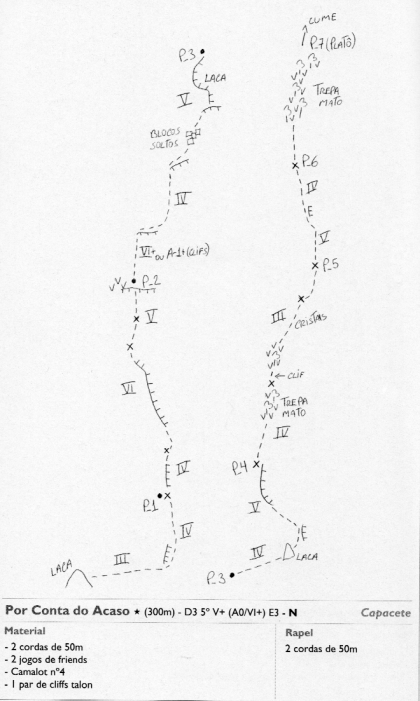 CUME
P_7 (PLATÔ)
TREPA
MATO
P_6
IV
E
V
P_5
III
CRISTAIS
← CLIF
TREPA
MATO
IV
P_4
V
E
LACA
IV
P_3
P_3
LACA
V
BLOCOS
SOLTOS
IV
VI+ ou A-1+ (CLIFS)
P_2
V
VI
IV
P_1
IV
III
LACA
Por Conta do Acaso ★ (300m) - D3 5º V+ (A0/VI+) E3 - N
Capacete
Material
- 2 cordas de 50m
- 2 jogos de friends
- Camalot nº4
- 1 par de cliffs talon
Rapel
2 cordas de 50m